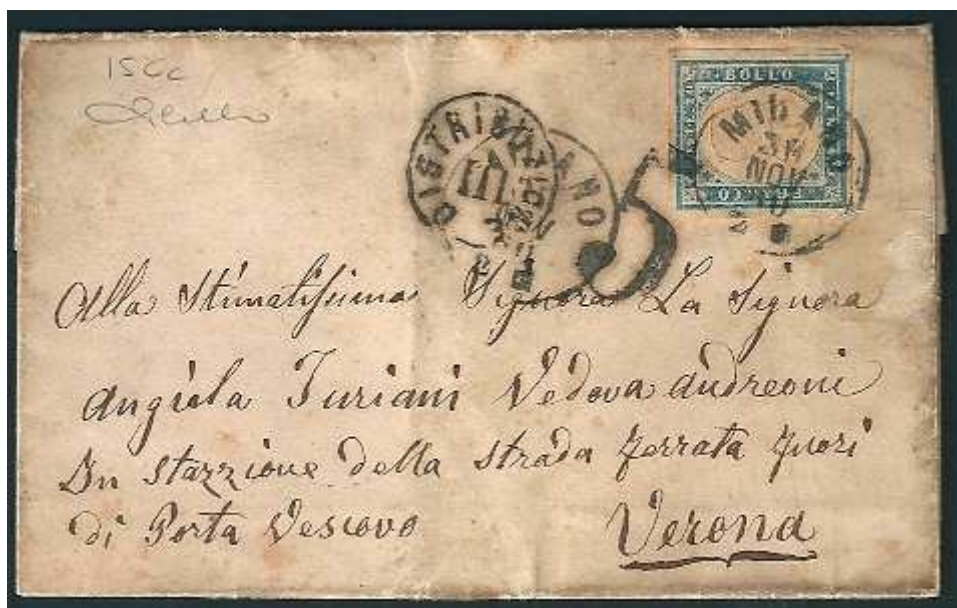 15Cc
BOLLO
FRANCO
MILANO
NOV
DISTRIBUZIONE
III
5
Alla Stimatissima Signora La Signora
Angiola Turiani Vedova Andreoni
In Stazzione della strada ferrata fuori
di Porta Vescovo Verona